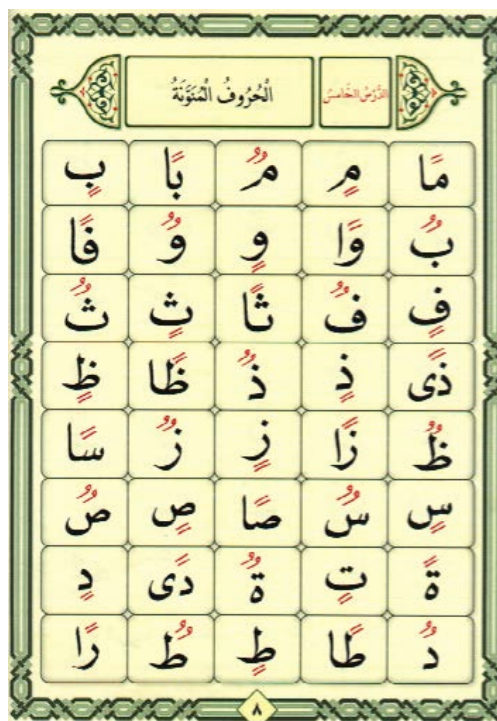 الدَّرْسُ الْخَامِسُ الْحُرُوفُ الْمُنَوَّنَةُ
مًا مٍ مٌ بًا بٍ
بٌ وًا وٍ وٌ فًا
فٍ فٌ ثًا ثٍ ثٌ
ذًى ذٍ ذٌ ظًا ظٍ
ظٌ زًا زٍ زٌ سًا
سٍ سٌ صًا صٍ صٌ
ةً تٍ ةٌ دًى دٍ
دٌ طًا طٍ طٌ رًا
٨